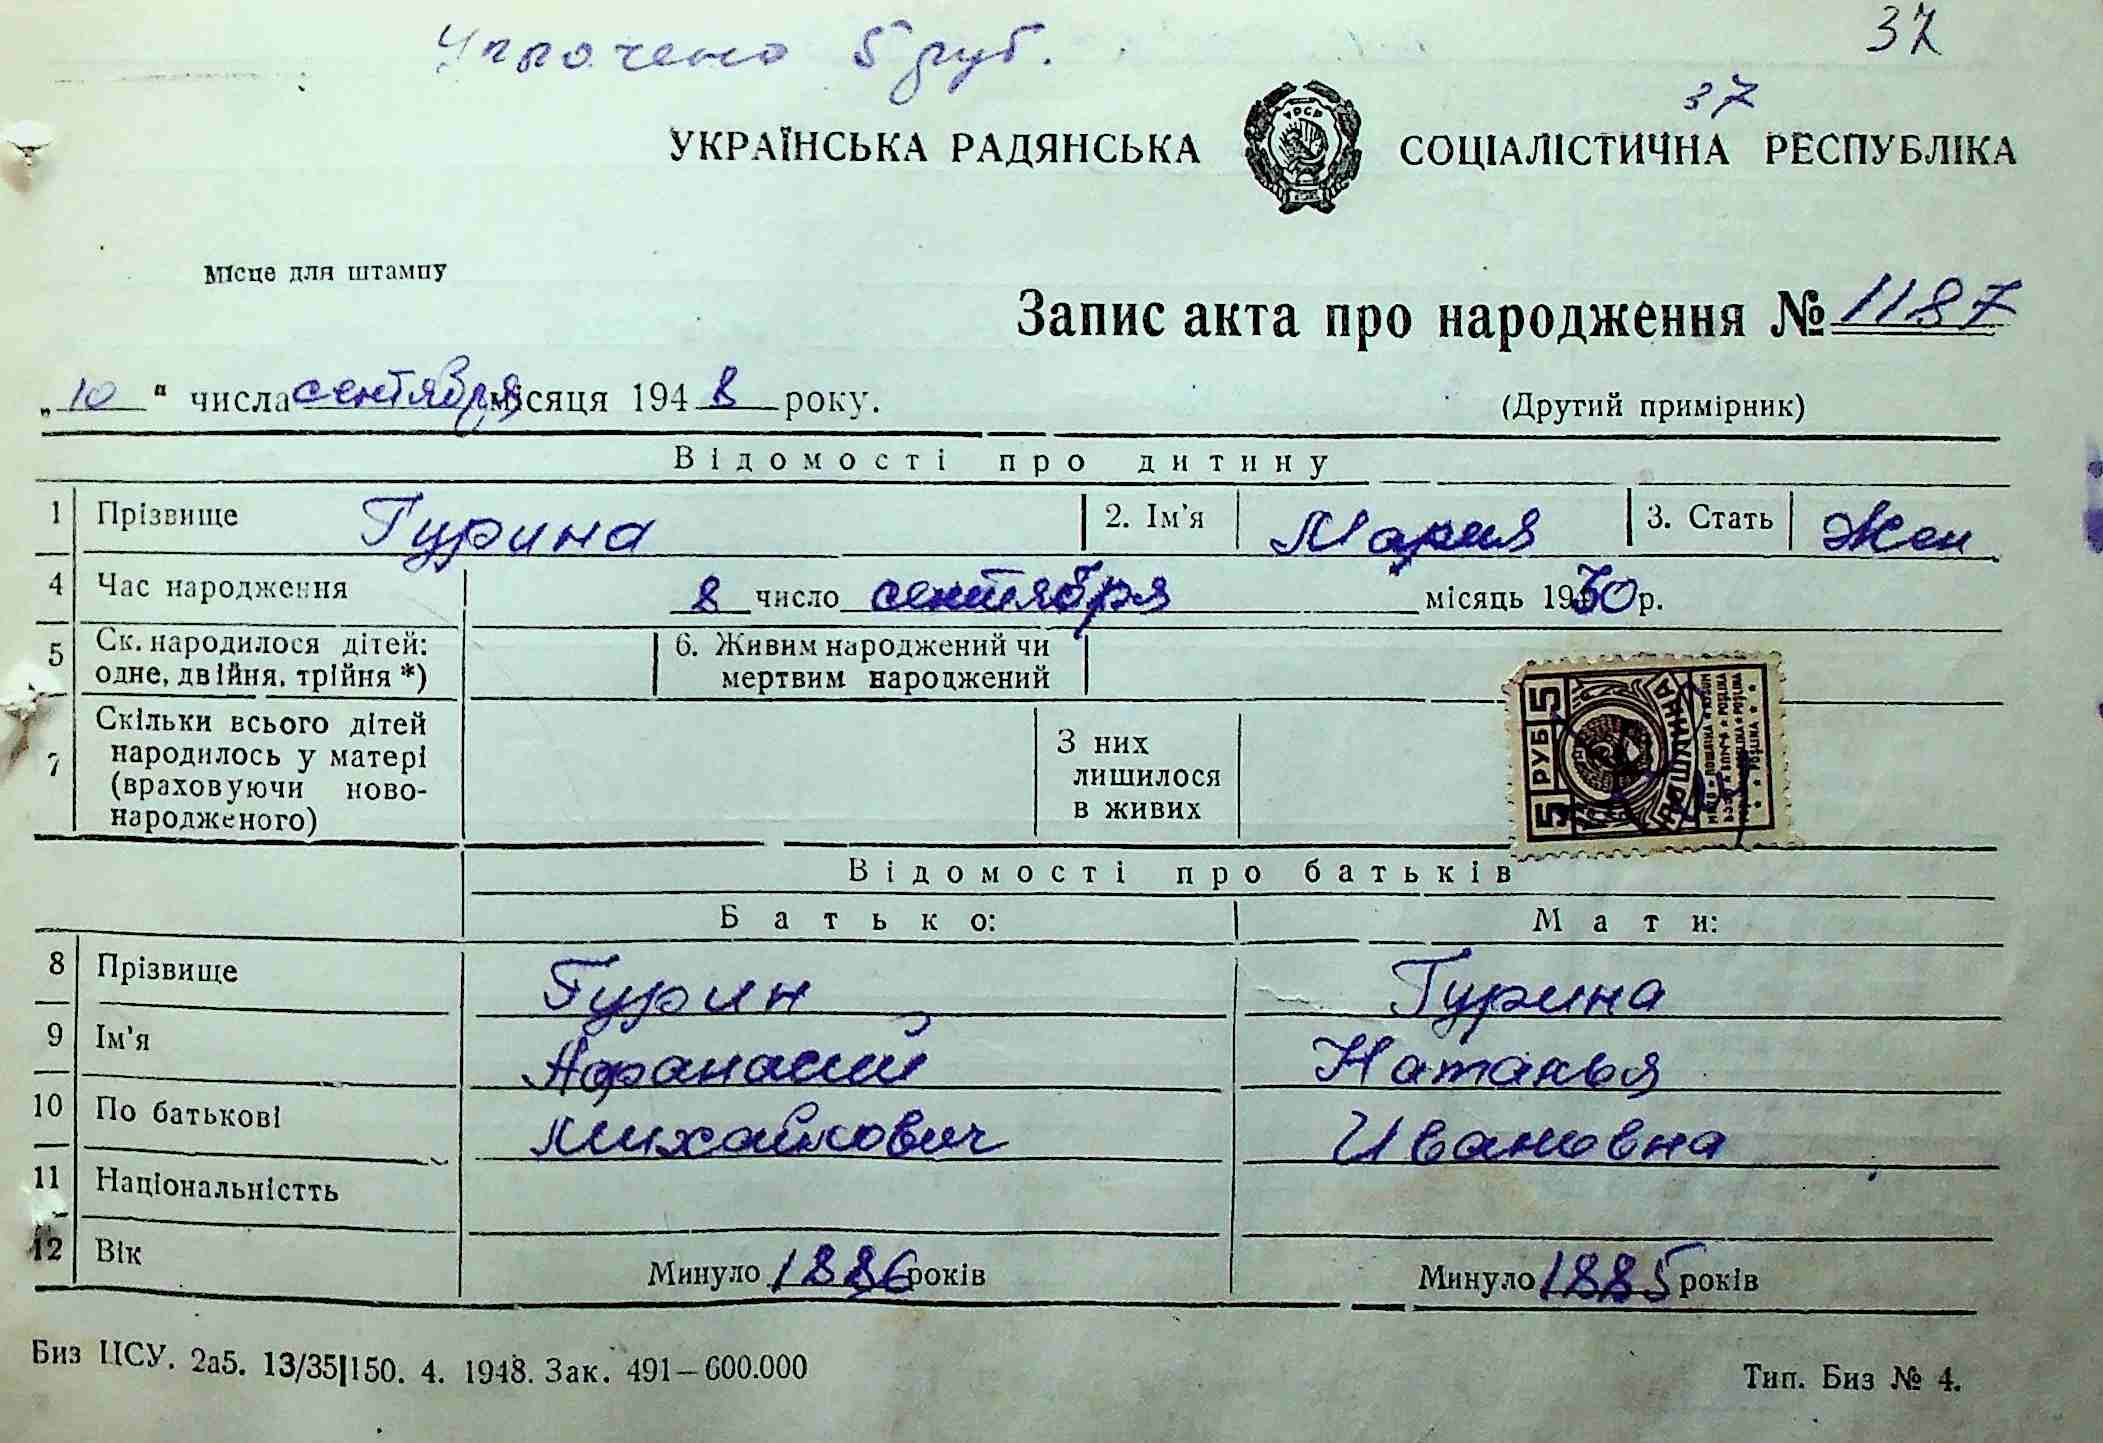 Уплочено 5 руб.
37
37
УКРАЇНСЬКА РАДЯНСЬКА СОЦІАЛІСТИЧНА РЕСПУБЛІКА
УРСР
Місце для штампу
Запис акта про народження № 1187
„10“ числа сентября місяця 1948 року.
(Другий примірник)
Відомості про дитину
1 Прізвище Гурина 2. Ім'я Мария 3. Стать Жен
4 Час народження 8 число сентября місяць 1930 р.
5 Ск. народилося дітей: одне, двійня, трійня *)
6. Живим народжений чи мертвим народжений
7 Скільки всього дітей народилось у матері (враховуючи ново-народженого)
З них лишилося в живих
5 РУБ 5
ПОШЛИНА
Відомості про батьків
Батько: Мати:
8 Прізвище Гурин Гурина
9 Ім'я Афанасий Наталья
10 По батькові Михайлович Ивановна
11 Національністть
12 Вік Минуло 1886 років Минуло 1885 років
Биз ЦСУ. 2а5. 13/35|150. 4. 1948. Зак. 491—600.000
Тип. Биз № 4.